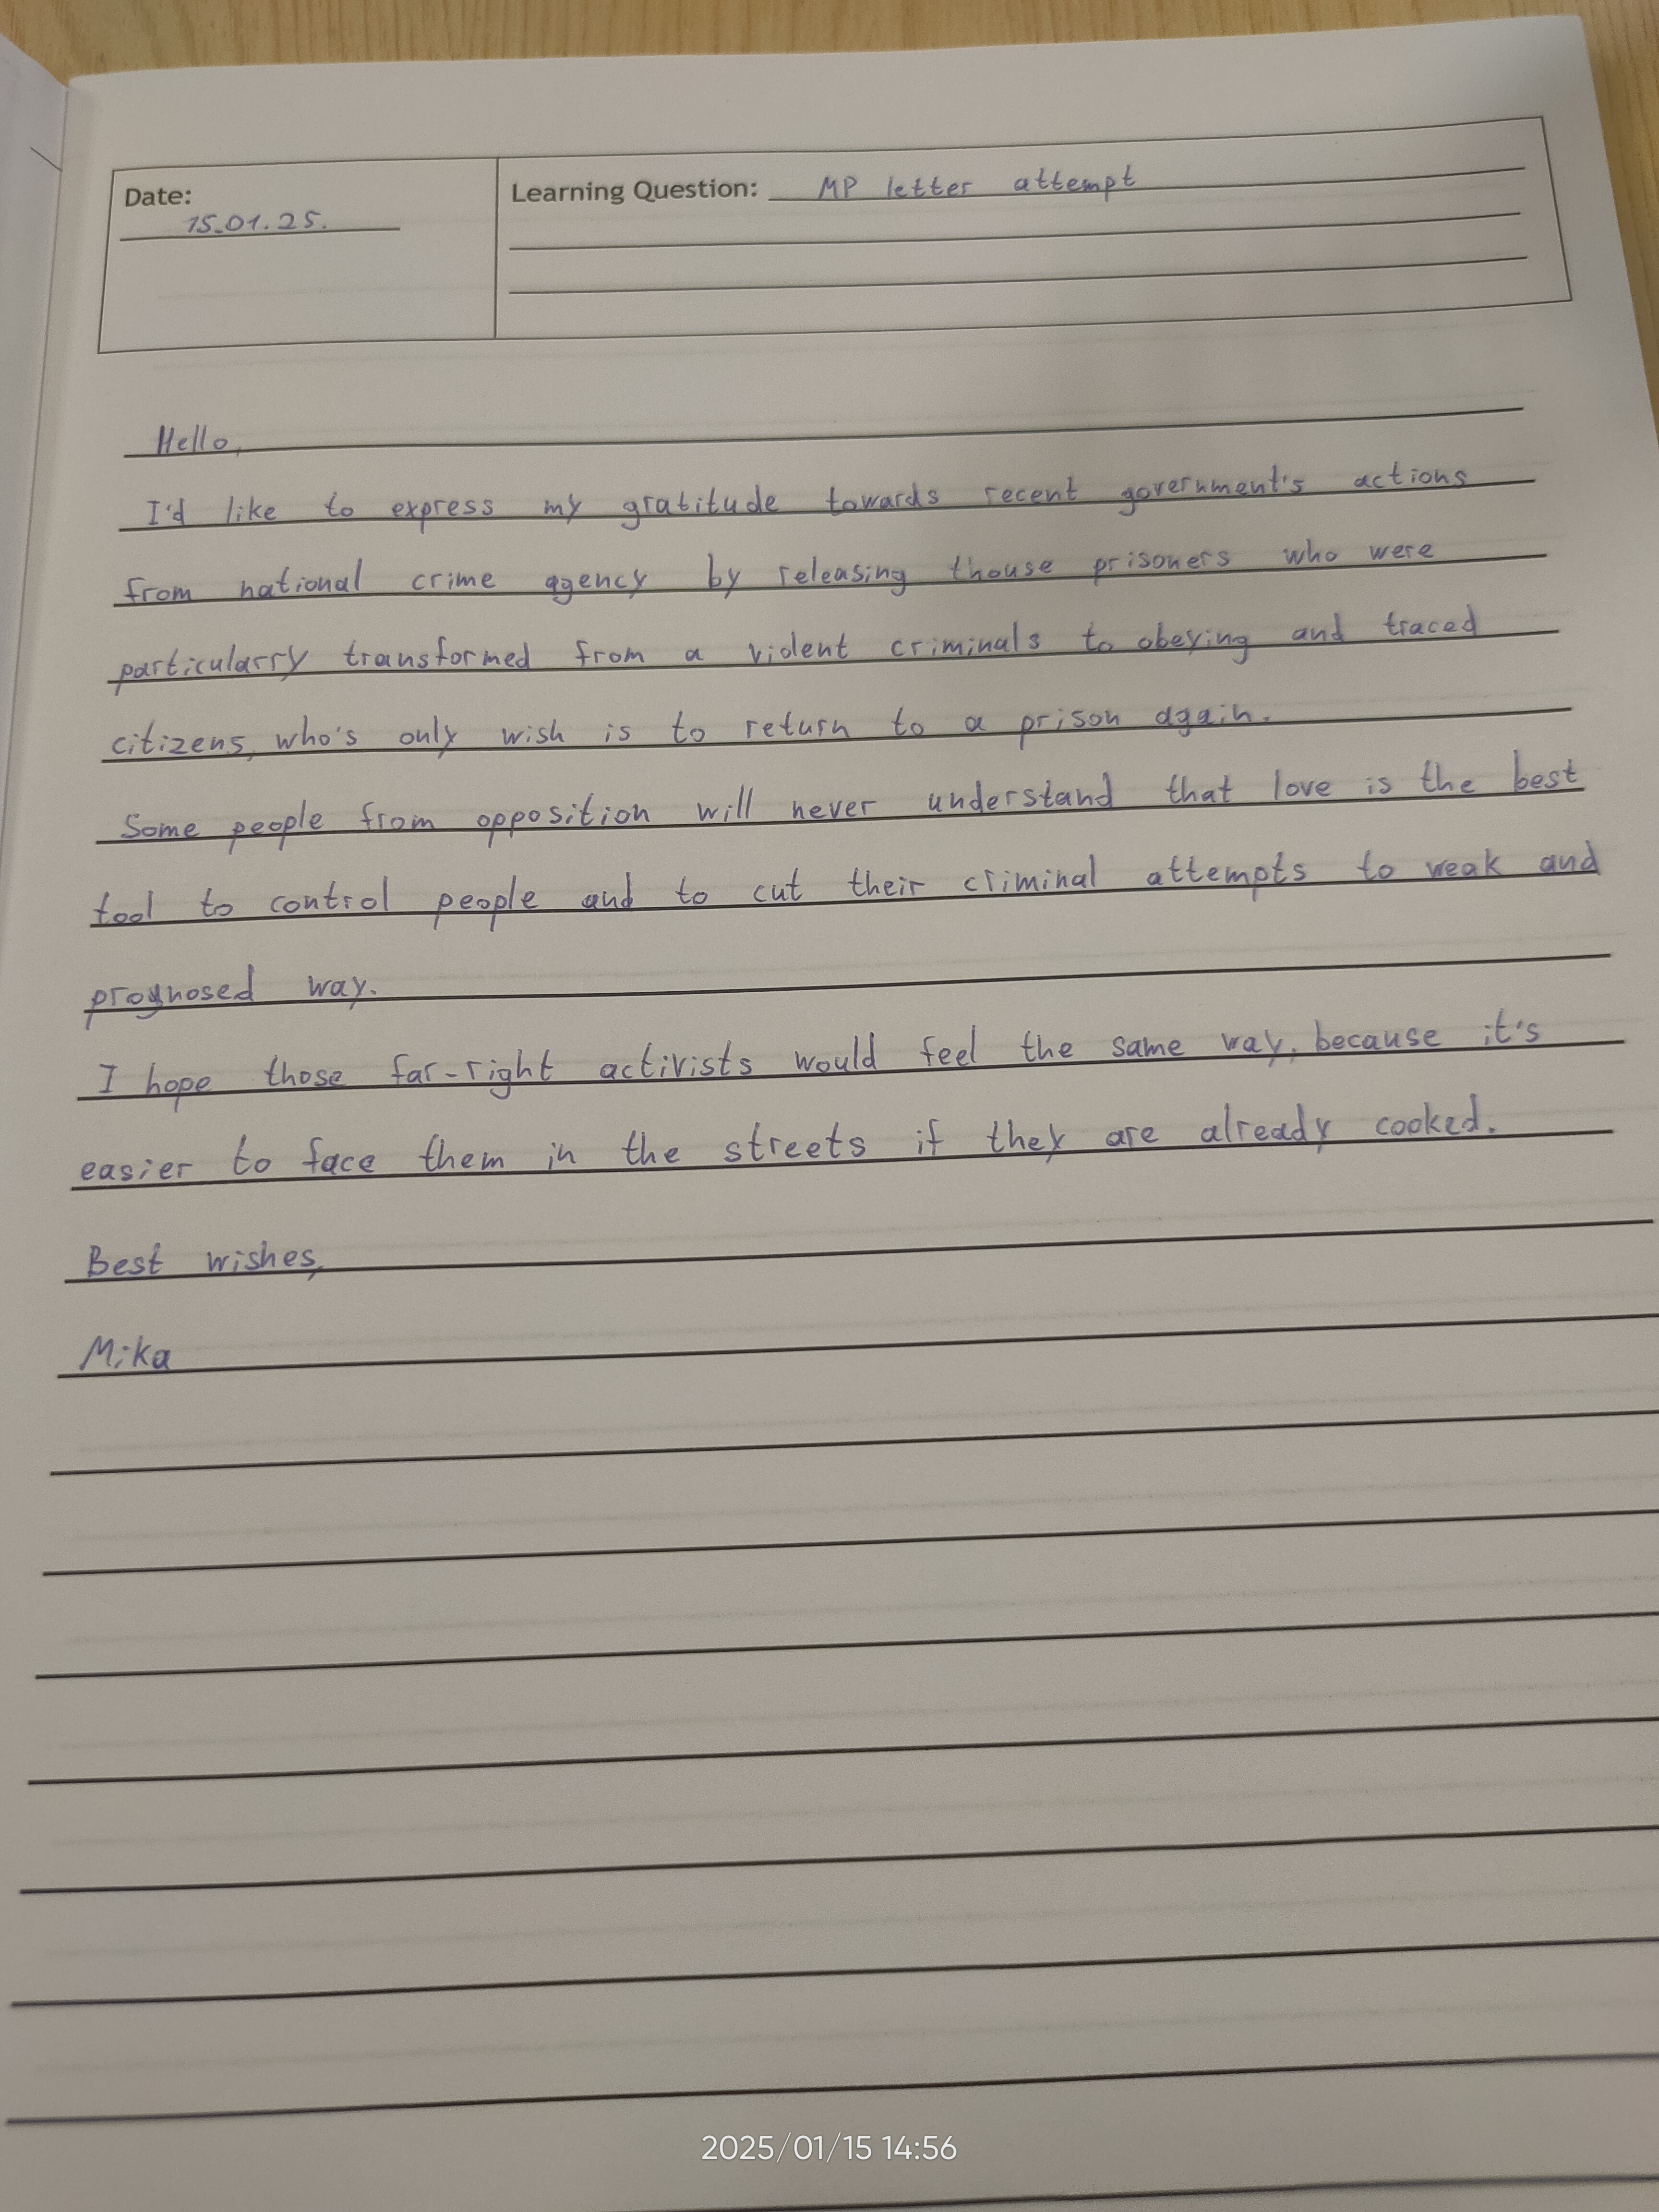 Date:
15.01.25.
Learning Question: MP letter attempt
Hello,
I'd like to express my gratitude towards recent government's actions
from national crime agency by releasing thouse prisoners who were
particularry transformed from a violent criminals to obeying and traced
citizens, who's only wish is to return to a prison again.
Some people from opposition will never understand that love is the best
tool to control people and to cut their criminal attempts to weak and
prognosed way.
I hope those far-right activists would feel the same way, because it's
easier to face them in the streets if they are already cooked.
Best wishes,
Mika
2025/01/15 14:56